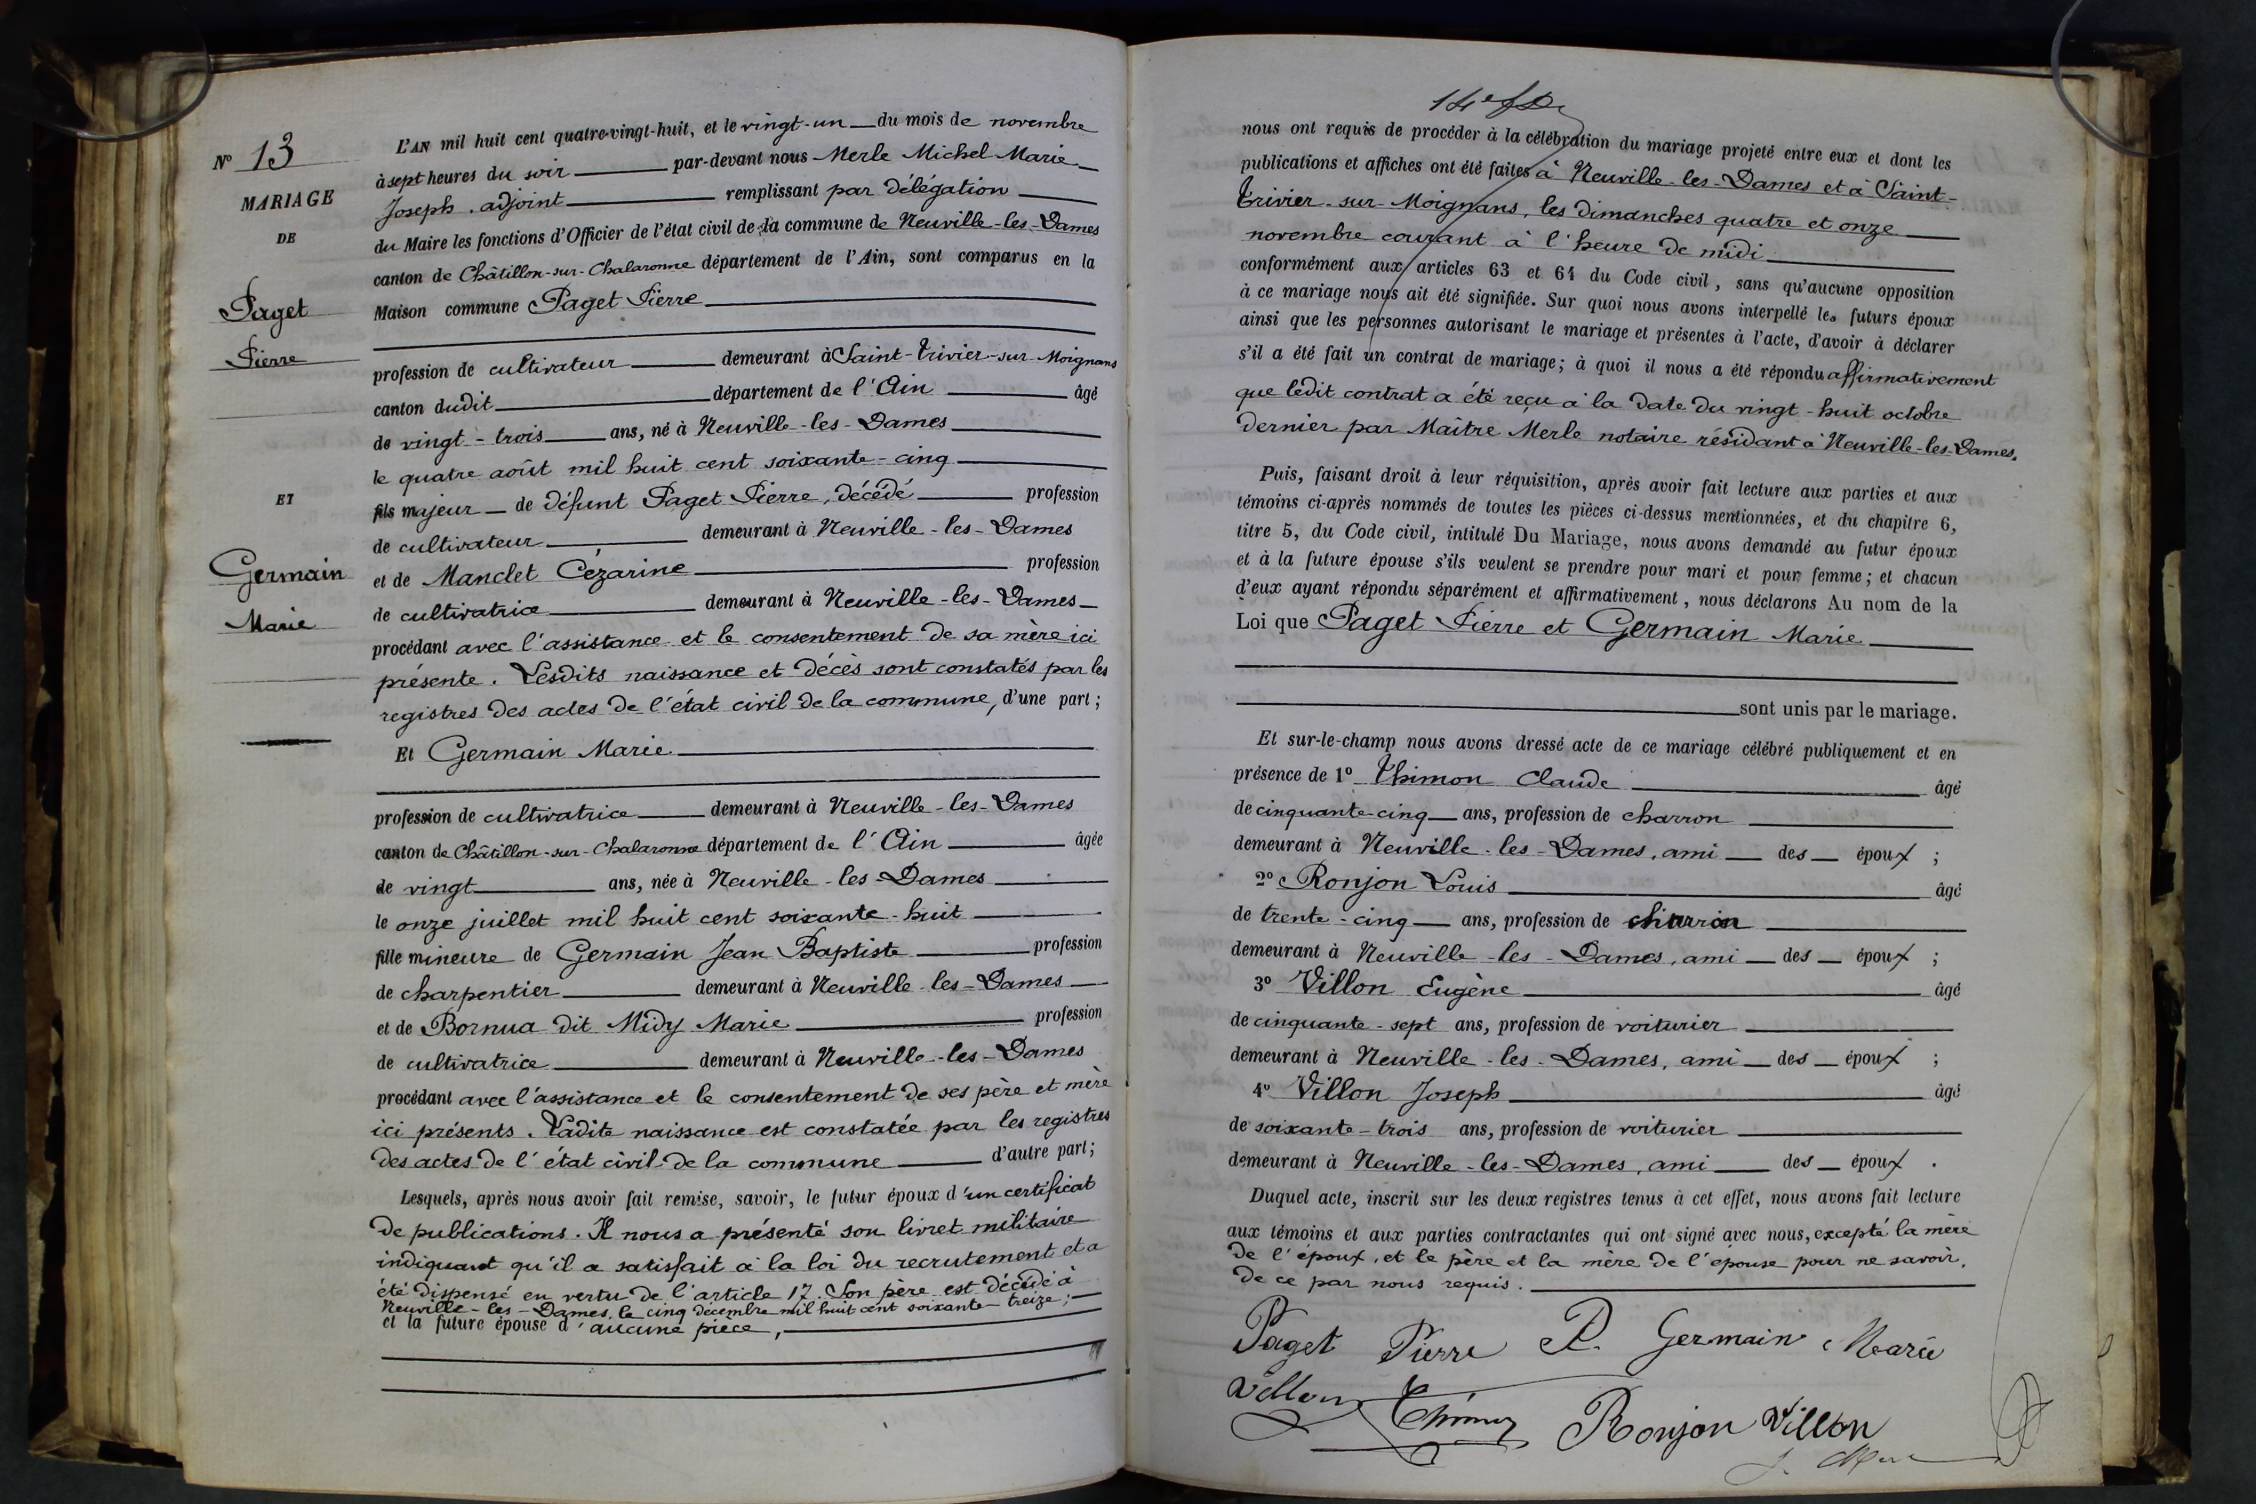 N° 13
MARIAGE
DE
Paget
Pierre
ET
Germain
Marie
L'AN mil huit cent quatre-vingt-huit, et le vingt-un du mois de novembre
à sept heures du soir par-devant nous Merle Michel Marie
Joseph, adjoint remplissant par délégation
du Maire les fonctions d'Officier de l'état civil de la commune de Neuville-les-Dames
canton de Châtillon-sur-Chalaronne département de l'Ain, sont comparus en la
Maison commune Paget Pierre
profession de cultivateur demeurant à Saint-Trivier-sur-Moignans
canton dudit département de l'Ain âgé
de vingt-trois ans, né à Neuville-les-Dames
le quatre août mil huit cent soixante-cinq
fils majeur de défunt Paget Pierre, décédé profession
de cultivateur demeurant à Neuville-les-Dames
et de Manclet Cézarine profession
de cultivatrice demeurant à Neuville-les-Dames
procédant avec l'assistance et le consentement de sa mère ici
présente. Lesdits naissance et décès sont constatés par les
registres des actes de l'état civil de la commune, d'une part;
Et Germain Marie
profession de cultivatrice demeurant à Neuville-les-Dames
canton de Châtillon-sur-Chalaronne département de l'Ain âgée
de vingt ans, née à Neuville-les-Dames
le onze juillet mil huit cent soixante-huit
fille mineure de Germain Jean Baptiste profession
de charpentier demeurant à Neuville-les-Dames
et de Bornua dit Midy Marie profession
de cultivatrice demeurant à Neuville-les-Dames
procédant avec l'assistance et le consentement de ses père et mère
ici présents. Ladite naissance est constatée par les registres
des actes de l'état civil de la commune d'autre part;
Lesquels, après nous avoir fait remise, savoir, le futur époux d'un certificat
de publications. Il nous a présenté son livret militaire
indiquant qu'il a satisfait à la loi du recrutement et a
été dispensé en vertu de l'article 17. Son père est décédé à
Neuville-les-Dames, le cinq décembre mil huit cent soixante-treize;
et la future épouse d'aucune pièce,
nous ont requis de procéder à la célébration du mariage projeté entre eux et dont les
publications et affiches ont été faites à Neuville-les-Dames et à Saint-
Trivier-sur-Moignans, les dimanches quatre et onze
novembre courant à l'heure de midi
conformément aux articles 63 et 64 du Code civil, sans qu'aucune opposition
à ce mariage nous ait été signifiée. Sur quoi nous avons interpellé les futurs époux
ainsi que les personnes autorisant le mariage et présentes à l'acte, d'avoir à déclarer
s'il a été fait un contrat de mariage; à quoi il nous a été répondu affirmativement
que ledit contrat a été reçu à la date du vingt-huit octobre
dernier par Maître Merle notaire résidant à Neuville-les-Dames.
Puis, faisant droit à leur réquisition, après avoir fait lecture aux parties et aux
témoins ci-après nommés de toutes les pièces ci-dessus mentionnées, et du chapitre 6,
titre 5, du Code civil, intitulé Du Mariage, nous avons demandé au futur époux
et à la future épouse s'ils veulent se prendre pour mari et pour femme; et chacun
d'eux ayant répondu séparément et affirmativement, nous déclarons Au nom de la
Loi que Paget Pierre et Germain Marie
sont unis par le mariage.
Et sur-le-champ nous avons dressé acte de ce mariage célébré publiquement et en
présence de 1° Thimon Claude âgé
de cinquante-cinq ans, profession de charron
demeurant à Neuville-les-Dames, ami des époux ;
2° Ronjon Louis âgé
de trente-cinq ans, profession de charron
demeurant à Neuville-les-Dames, ami des époux ;
3° Villon Eugène âgé
de cinquante-sept ans, profession de voiturier
demeurant à Neuville-les-Dames, ami des époux ;
4° Villon Joseph âgé
de soixante-trois ans, profession de voiturier
demeurant à Neuville-les-Dames, ami des époux .
Duquel acte, inscrit sur les deux registres tenus à cet effet, nous avons fait lecture
aux témoins et aux parties contractantes qui ont signé avec nous, excepté la mère
de l'époux, et le père et la mère de l'épouse pour ne savoir,
de ce par nous requis.
Paget Pierre P. Germain Marie
Villon Thimon Ronjon Villon